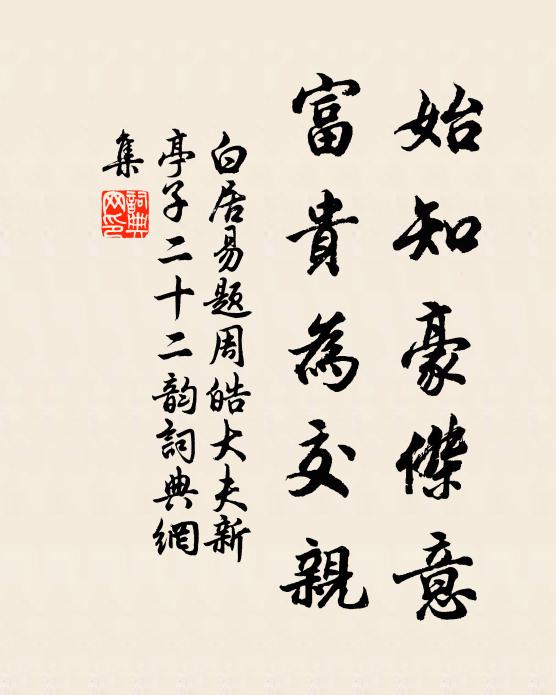 始知豪傑意
富貴為交親
白居易题周皓大夫新
亭子二十二韵詞典網
集
詞典网印